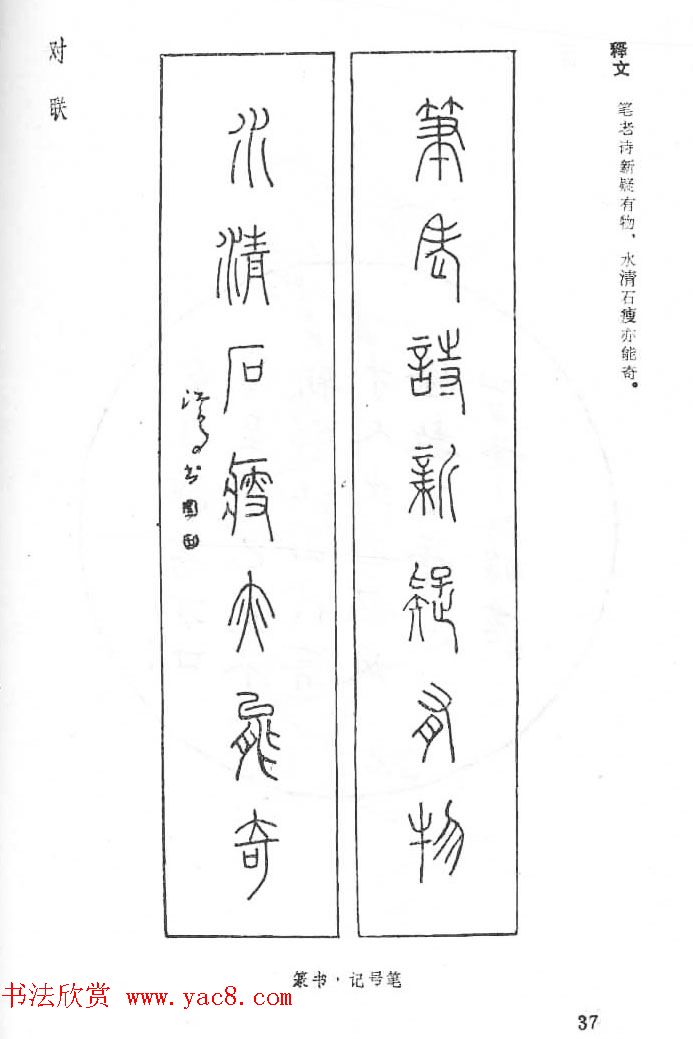 对联
释文 笔老诗新疑有物，水清石瘦亦能奇。
筆老詩新疑有物
水清石瘦亦能奇
篆书·记号笔
书法欣赏 www.yac8.com
37